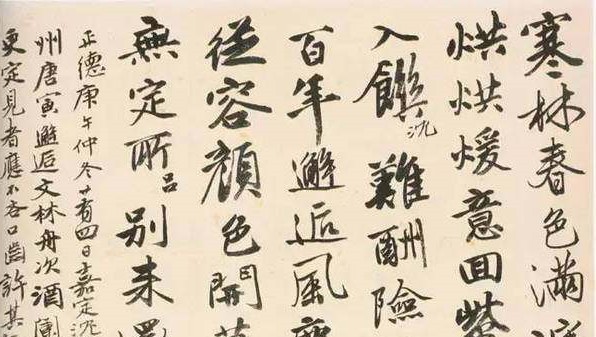 寒林春色滿
烘烘煖意回紫
入饌沈難酬險
百年邂逅風塵
從容顏色開
無定所呂別未還
正德庚午仲冬廿有四日嘉定沈
州唐寅邂逅文林舟次酒闌
更定見者應不吝口齒許其